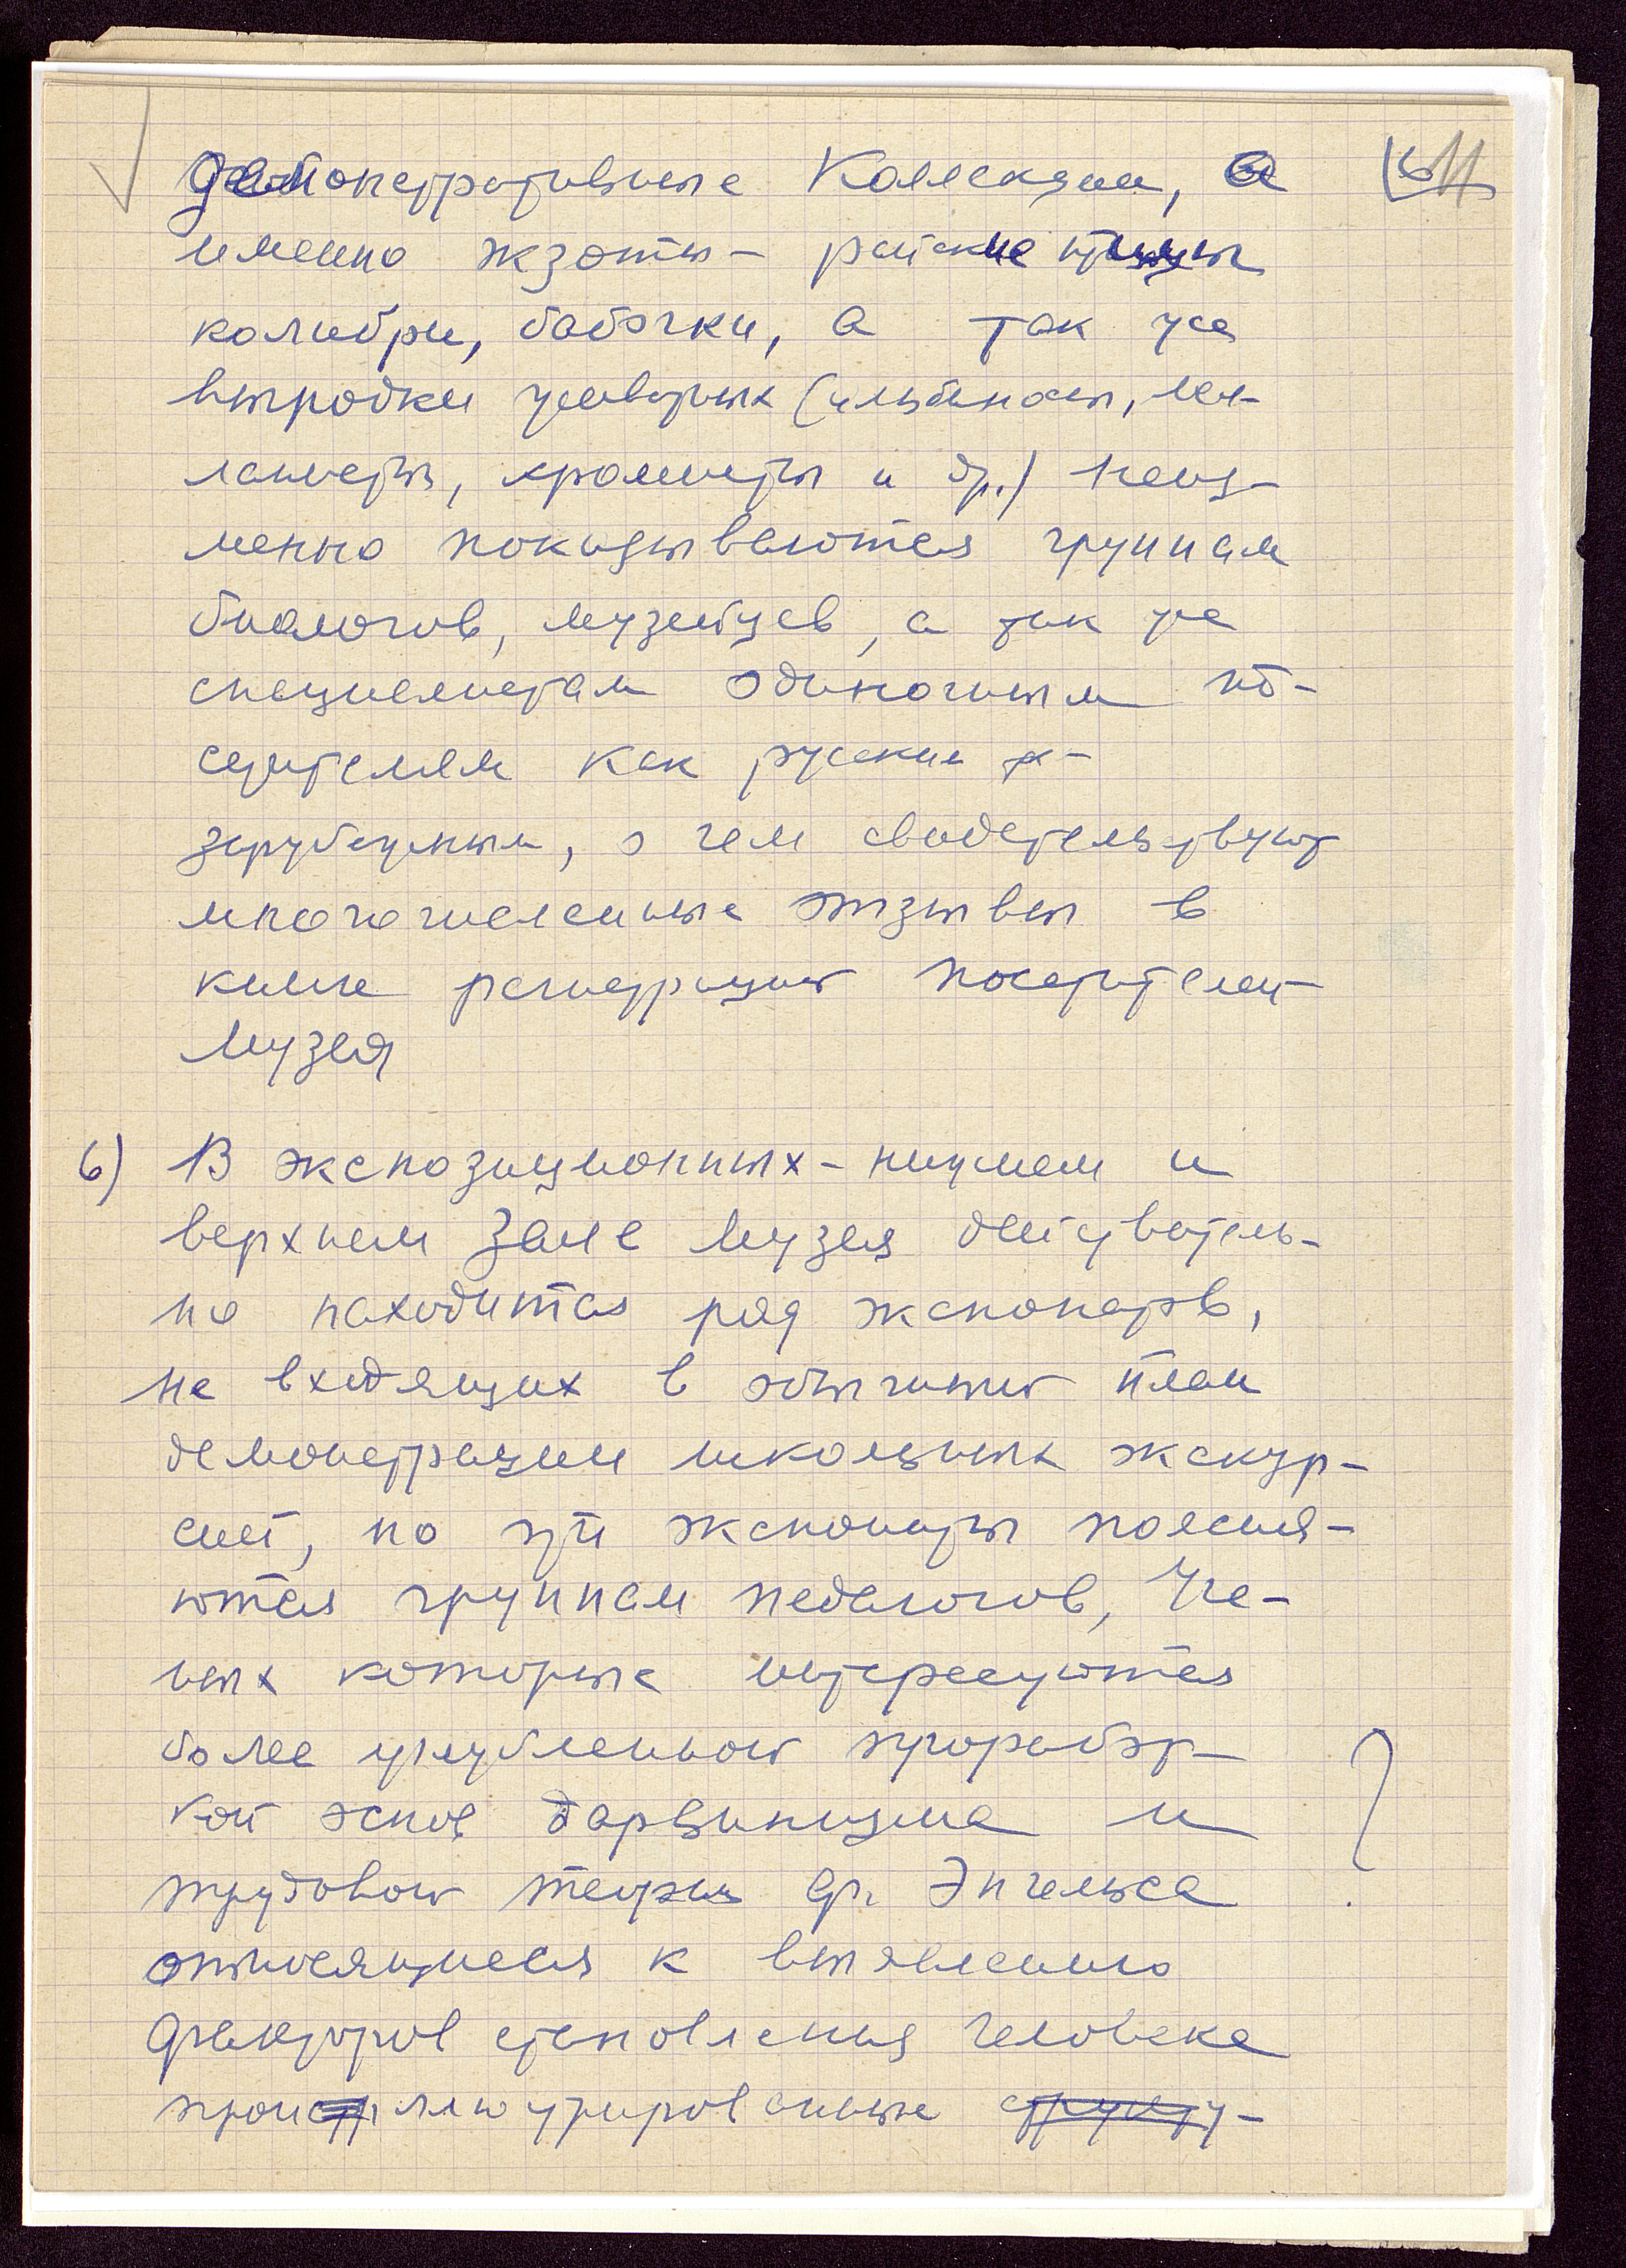 демонстративные Коллекции, а
именно экзоты – райские птицы
колибри, бабочки, а так же
выродки животных (альбиносы, ме-
ланисты, хромисты и др.) неиз-
менно показываются группам
биологов, музейцев, а так же
специалистам одиночным по-
сетителям как русским –
зарубежным, о чем свидетельствуют
многочисленные отзывы в
книге регистрации посетителей
Музея
6) В экспозиционных – нижнем и
верхнем зале Музея действитель-
но находится ряд экспонатов,
не входящих в обычный план
демонстрации школьных экскур-
сий, но эти экспонаты поясня-
ются группам педагогов, Уче-
ных которые интересуются
более углубленной проработ-
кой основ дарвинизма и
трудовой теории Фр. Энгельса
относящиеся к выявлению
факторов становления человека
проиллюстрированные